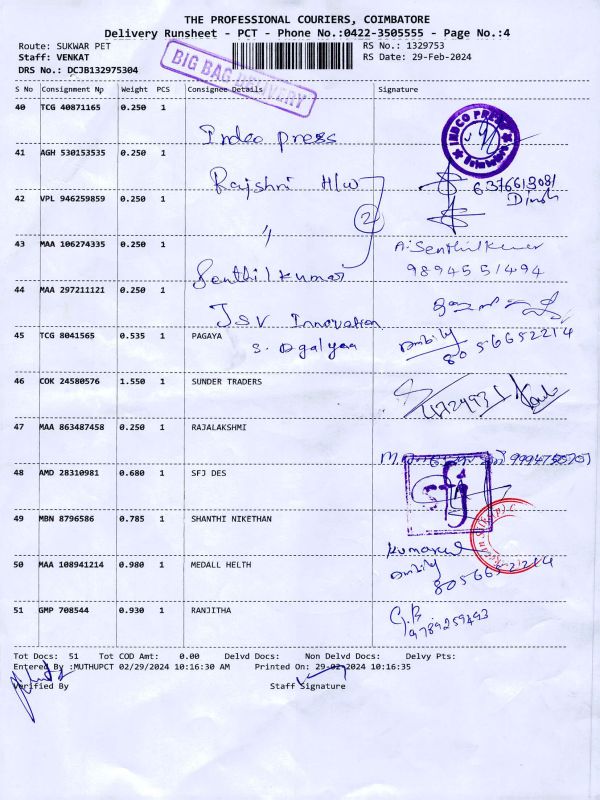 THE PROFESSIONAL COURIERS, COIMBATORE
Delivery Runsheet - PCT - Phone No.:0422-3505555 - Page No.:4
Route: SUKWAR PET
RS No.: 1329753
Staff: VENKAT
RS Date: 29-Feb-2024
DRS No.: DCJB132975304
BIG BAG DELIVERY
S No Consignment Np Weight PCS Consignee Details Signature
40 TCG 40871165 0.250 1
Indco press
INDCO PRESS
Coimbatore
41 AGH 530153535 0.250 1
Rajshri H/w
6376613081
Dinsh
42 VPL 946259859 0.250 1
2
"
43 MAA 106274335 0.250 1
Senthilkumar
A. Senthilkumar
9894551494
44 MAA 297211121 0.250 1
JSV Innovation
45 TCG 8041565 0.535 1 PAGAYA
8056652214
46 COK 24580576 1.550 1 SUNDER TRADERS
47 MAA 863487458 0.250 1 RAJALAKSHMI
48 AMD 28310981 0.680 1 SFJ DES
sfj
49 MBN 8796586 0.785 1 SHANTHI NIKETHAN
50 MAA 108941214 0.980 1 MEDALL HELTH
8056652214
51 GMP 708544 0.930 1 RANJITHA
G.B
9789259493
Tot Docs: 51 Tot COD Amt: 0.00 Delvd Docs: Non Delvd Docs: Delvy Pts:
Entered By :MUTHUPCT 02/29/2024 10:16:30 AM Printed On: 29-02-2024 10:16:35
Verified By Staff Signature